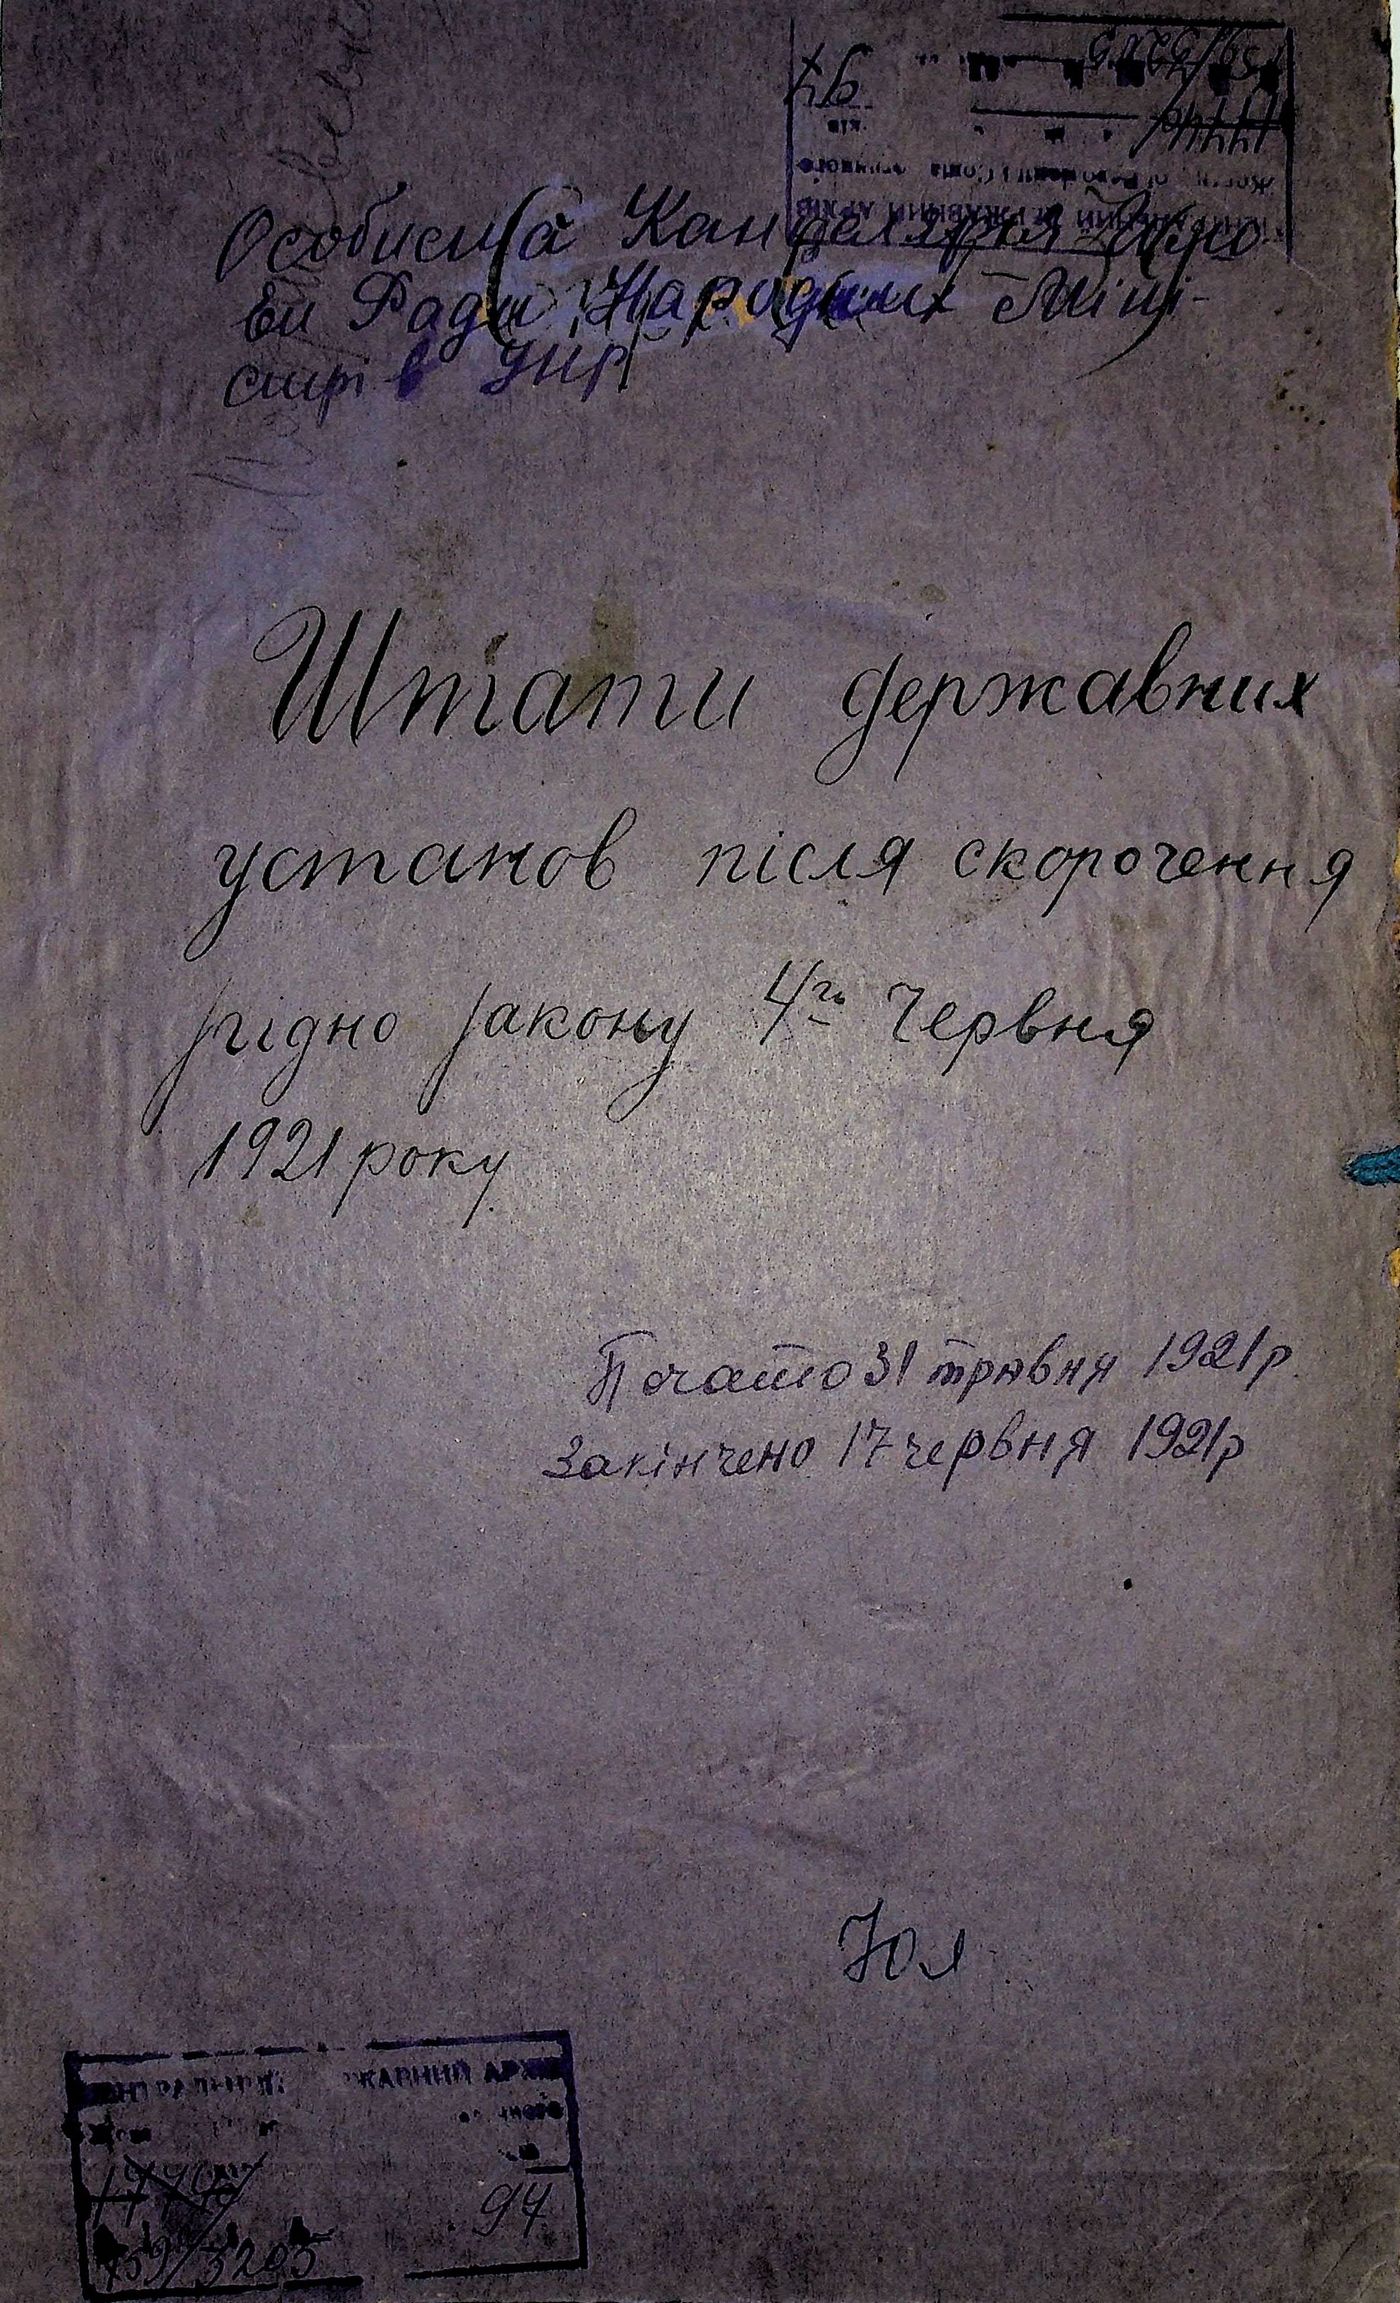 94
Особиста Канцелярія Голо
ви Ради Народних Міні-
стрів УНР
Штати державних
установ після скорочення
згідно закону 4го Червня
1921 року
Почато 31 травня 1921 р.
Закінчено 17 червня 1921 р
АРХІВ
94